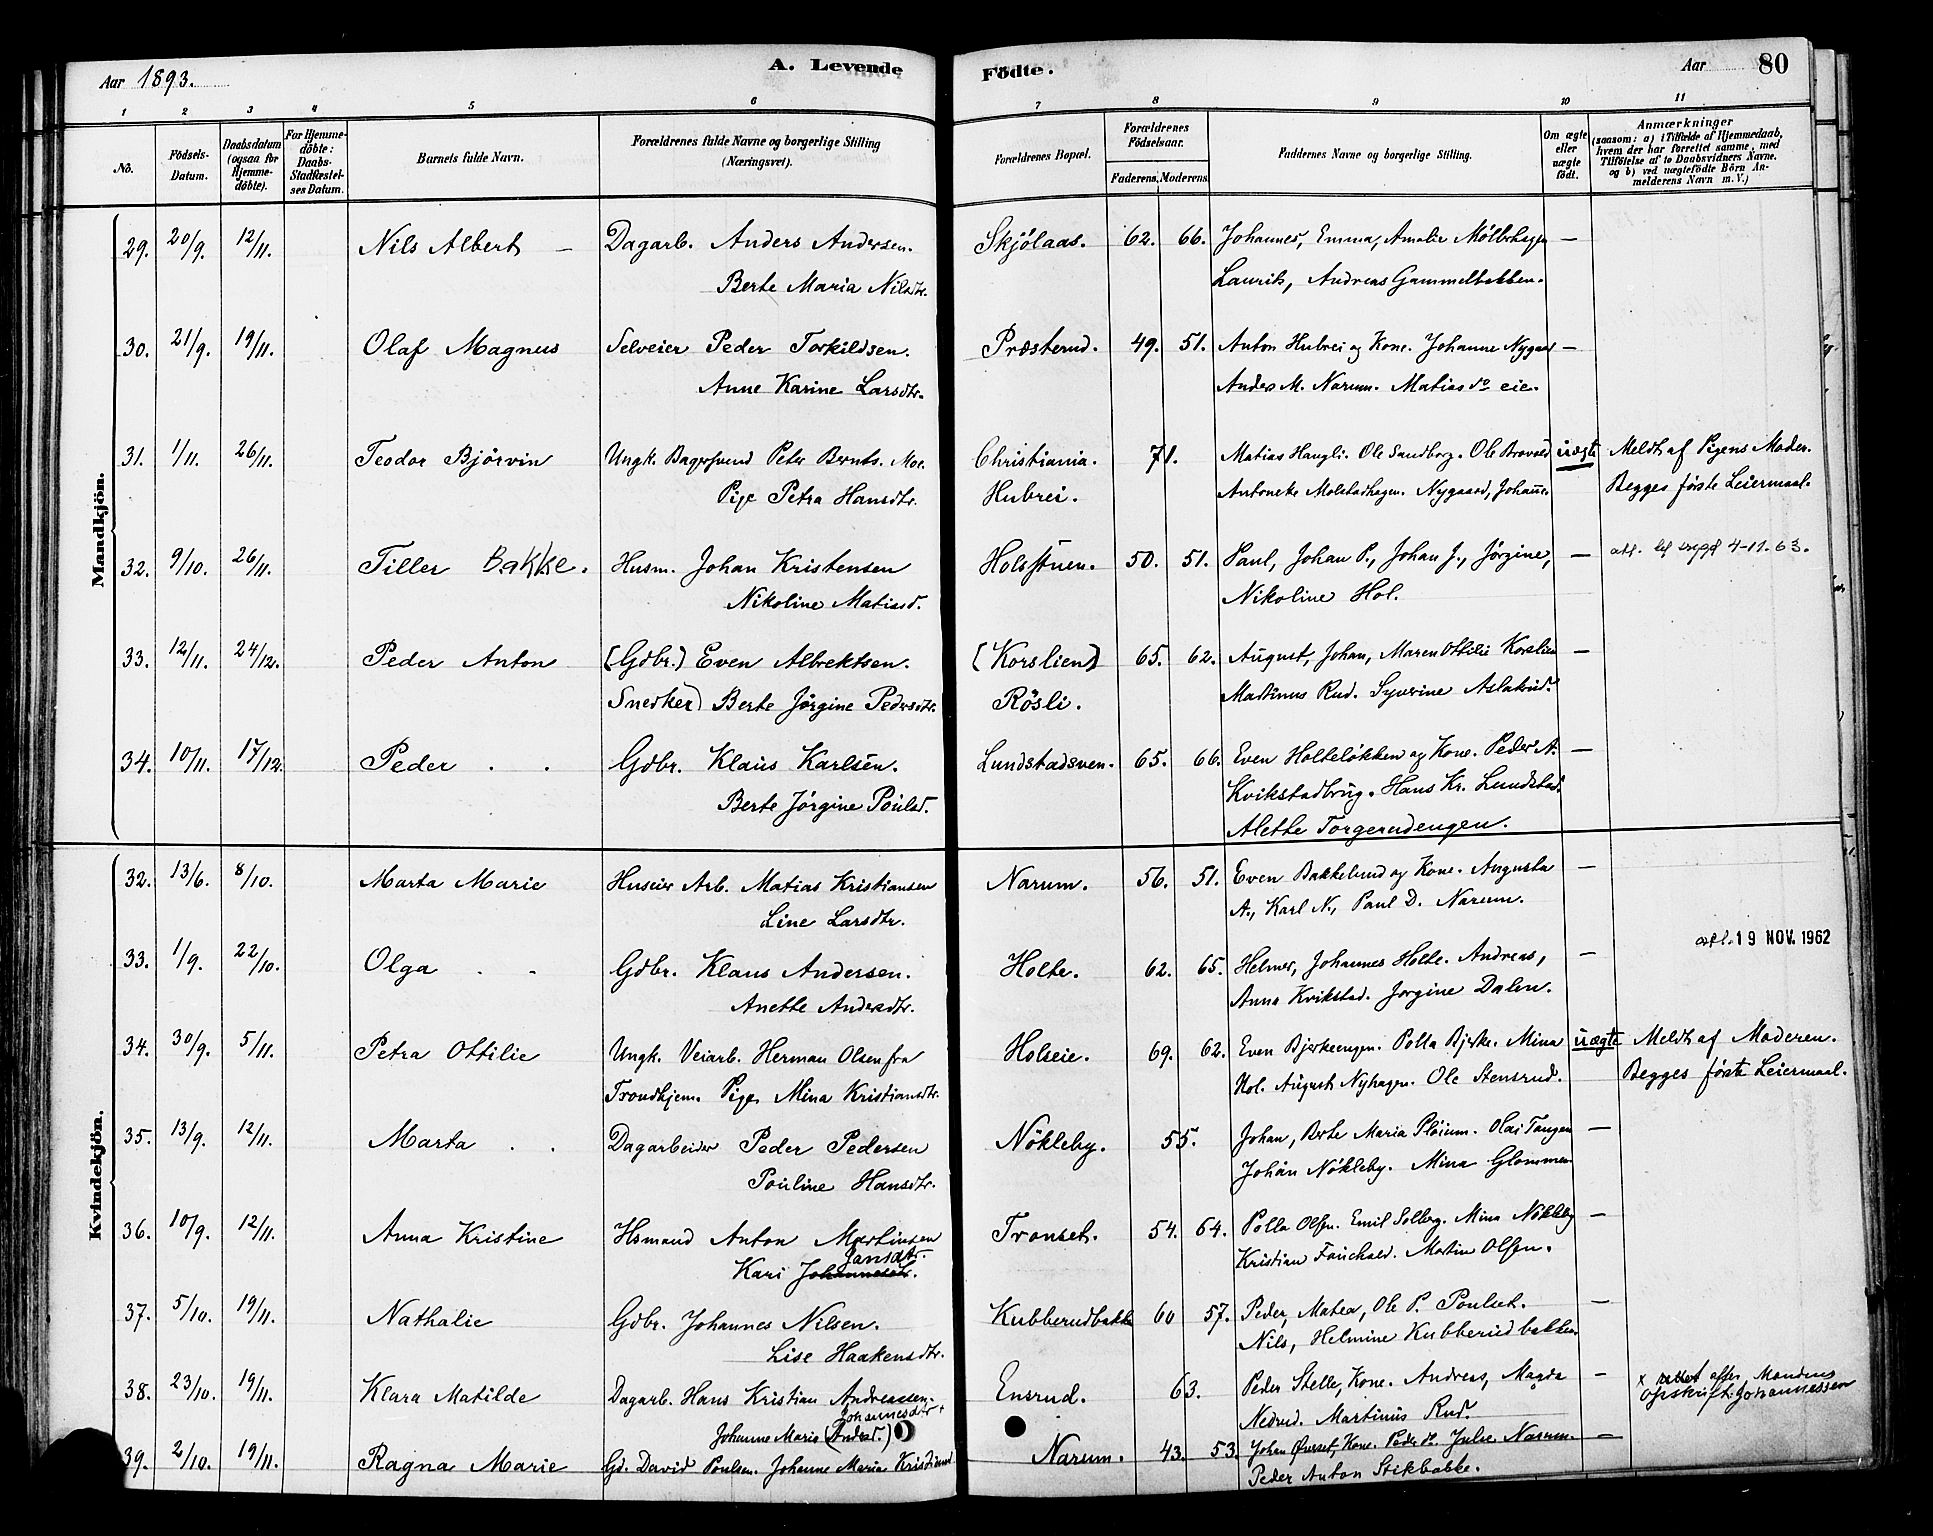 Aar 1893. A. Levende Födte. Aar 80
1 2 3 4 5 6 7 8 9 10 11
No. Födsels-Datum. Daabsdatum (ogsaa for Hjemme-döbte). For Hjemme-döbte: Daabs-Stadfæstel-ses Datum. Barnets fulde Navn. Forældrenes fulde Navne og borgerlige Stilling (Næringsvei). Forældrenes Bopæl. Forældrenes Födselsaar. Faderens. Moderens. Faddernes Navne og borgerlige Stilling. Om ægte eller uægte födt. Anmærkninger (saasom: a) i Tilfælde af Hjemmedaab, hvem der har forrettet samme, med Tilföielse af to Daabsvidners Navne, og b) ved uægtefödte Börn An-melderens Navn m. V.)
Mandkjön.
29. 20/9. 12/11. Nils Albert – Dagarb. Anders Andersen. Skjölaas. 62. 66. Johannes, Emma, Amalie Mölbehagen –
Berte Maria Nilsdtr. Laurits, Andreas Gammelbakken.
30. 21/9. 19/11. Olaf Magnus Selveier Peder Torkildsen. Præsterud. 49. 51. Anton Hubrei og Kone. Johanne Nygaar –
Anne Karine Larsdtr. Anders M. Narum. Matias do eie.
31. 1/11. 26/11. Teodor Bjørvin Ungk. Bagersvend Peter Bernts. Moe. Christiania. 71. Matias Haugli. Ole Sandborg. Ole Brovold uægte Meldt af Pigens Moder.
Pige Petra Hansdtr. Hubrei. Antoneke Molstadhagen. Nygaard, Johanne Begges første Leiermaal.
32. 9/10. 26/11. Tiller Bakke. Husm. Johan Kristensen Holsstuen. 50. 51. Paul, Johan P., Johan J., Jørgine, – 4-11.63.
Nikoline Matiasd. Nikoline Hol.
33. 12/11. 24/12. Peder Anton (Gdbr.) Even Albrektsen. (Korslien) 65. 62. August, Johan, Maren Ottilie Korslien –
Snedker) Berte Jørgine Pedersdtr. Rösli. Martinus Rud. Syverine Aslakrud.
34. 10/11. 17/12. Peder . . Gdbr. Klaus Karlsen. Lundstadsven. 65. 66. Even Holteløkken og Kone. Peder A. –
Berte Jørgine Poulsd. Kvikstadbrug. Hans Kr. Lundstad.
Alette Torgerudengen.
Kvindekjön.
32. 13/6. 8/10. Marta Marie Huseier Arb. Matias Kristiansen Narum. 56. 51. Even Bakkelund og Kone. Augusta –
Line Larsdtr. A., Karl N., Paul D. Narum.
33. 1/9. 22/10. Olga . . Gdbr. Klaus Andersen. Holte. 62. 65. Helmer, Johannes Holte. Andreas, – atl. 19 NOV. 1962
Anette Andersdtr. Anna Kvikstad. Jørgine Dalen.
34. 30/9. 5/11. Petra Ottilie Ungk. Veiarb. Herman Olsen fra Holseie. 69. 62. Even Bjerkeengen. Polla Bjerke. Mina uægte Meldt af Moderen.
Trondhjem. Pige Mina Kristiansdtr. Hol. August Nyhagen. Ole Stensrud. Begges første Leiermaal.
35. 13/9. 12/11. Marta . . Dagarbeider Peder Pedersen Nökleby. 55. Johan, Berte Maria Pløium. Olai Tangen –
Pouline Hansdtr. Johan Nökleby. Mina Glommen
36. 10/9. 12/11. Anna Kristine Hsmand Anton Martinsen Tronset. 54. 64. Polla Olsen. Emil Solberg. Mina Nökleby –
Kari Johannesdtr. Jansdtr. Kristian Fauchald. Martin Olsen.
37. 5/10. 19/11. Nathalie Gdbr. Johannes Nilsen. Kubberudbakke 60 57. Peder, Matea, Ole P. Poulset. –
Lise Haakensdtr. Nils, Helmine Kubberudbakken.
38. 23/10. 19/11. Klara Matilde Dagarb. Hans Kristian Andreassen. Ensrud. 63. Peder Stelle, Kone. Andreas, Magda – x rettet efter Mandens
Johanne Marie (Andersd.) Johannesdtr x Nedrud. Martinus Rud. Opskrift: Johannessen
39. 2/10. 19/11. Ragna Marie Gd. David Poulsen. Johanne Maria Kristiansd Narum. 43. 53. Johan Øverset, Kone. Peder M. Julie Narum. –
Peder Anton Stikbakke.